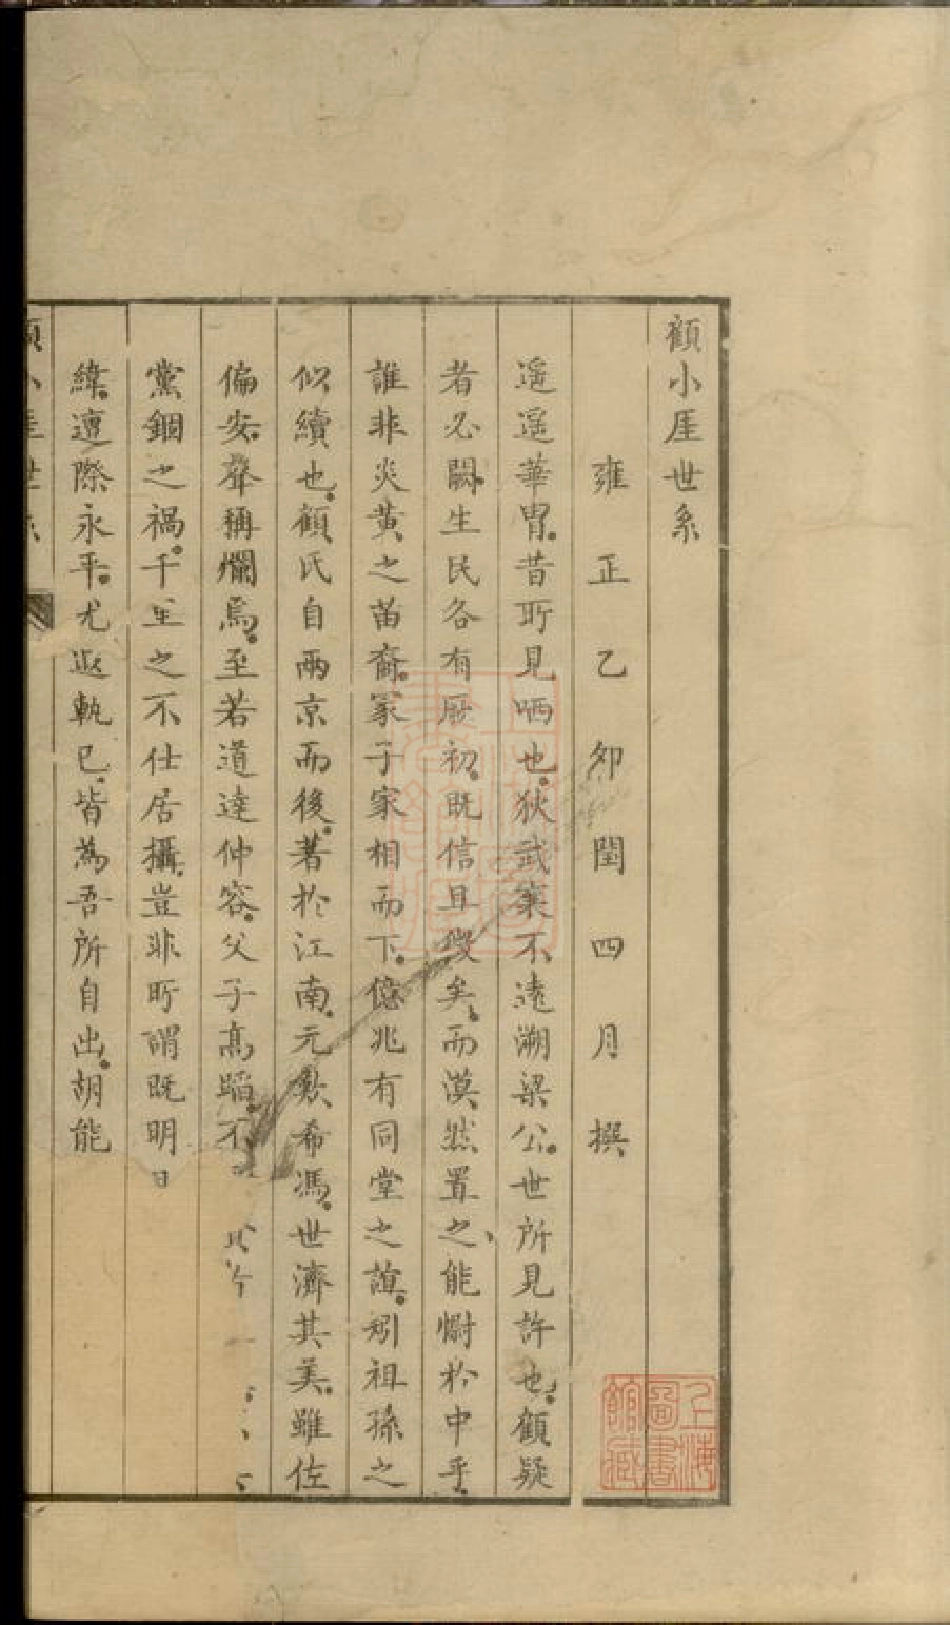 顧小厓世系
雍正乙卯閏四月撰
遥遥華胄昔所見哂也狄武襄不遠溯梁公世所見許也顧疑
者必闕生民各有厥初既信且徴矣而漠然置之能慊於中乎
誰非炎黄之苗裔冢子家相而下億兆有同堂之誼矧祖孫之
似續也顧氏自兩京而後著於江南元歎希馮世濟其美雖佐
偏安羣稱爛焉至若道達仲容父子高蹈不
黨錮之禍千里之不仕居攝豈非所謂既明
緯遭際永平尤返軌已皆為吾所自出胡能
上海圖書館藏